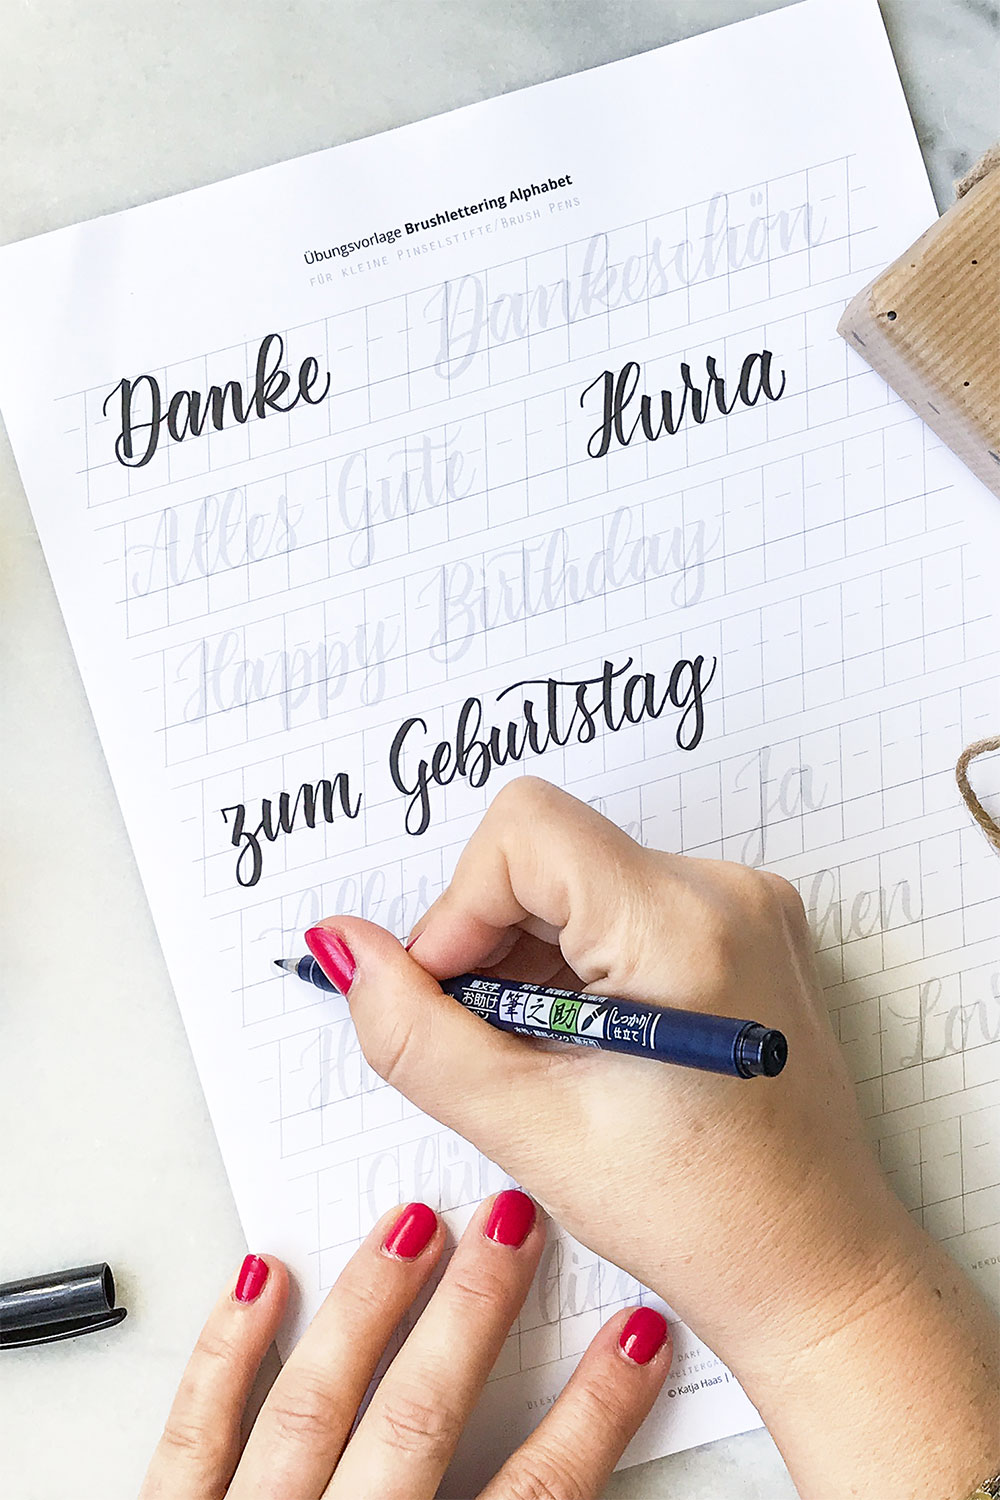 Übungsvorlage Brushlettering Alphabet
FÜR KLEINE PINSELSTIFTE/BRUSH PENS
Danke Dankeschön
Hurra
Alles Gute
Happy Birthday
zum Geburtstag
Alles Ja
筆文字
お助け
筆之助
しっかり
仕立て
© Katja Haas |